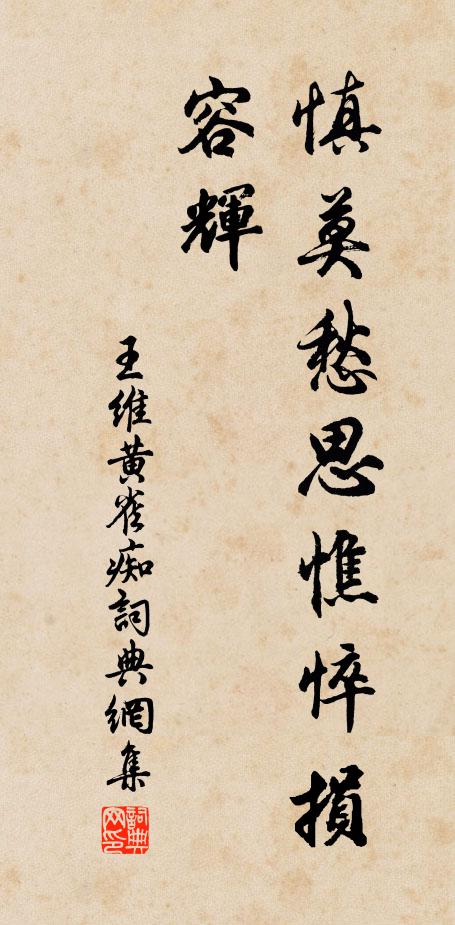 慎莫愁思憔悴損
容輝
王維黄雀痴詞典網集
詞典网印